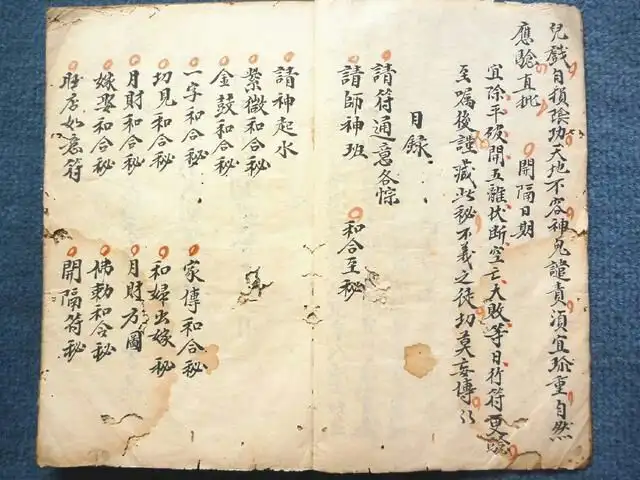 兒戲自損陰功天地不容神鬼譴責須宜珍重自然
應驗直批　開隔日期
宜除平破開五離伐斷空亡大敗等日行符更驗
至囑後謹藏此秘不義之徒切莫妄傳
目錄
請符通意各悰
請師神班　和合至秘
請神起水
紫微和合秘
金鼓和合秘　家傳和合秘
一字和合秘　和婦出嫁秘
切見和合秘　月財方圓
月財和合秘　佛勅和合秘
嫁娶和合秘　開隔符秘
如意符